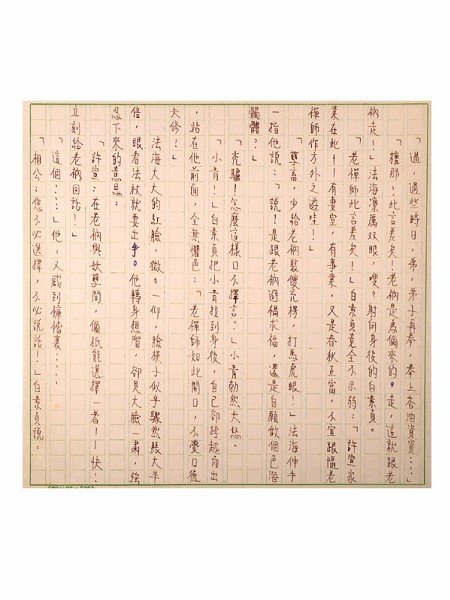 「過，過些時日，弟，弟子再奉，奉上香油資資……」
「檀那！此言差矣！老衲是為儞來的。走，這就跟老
衲走！」法海凜厲双眼，嗖々射向身後的白素貞。
「老禪師此言差矣！」白素貞全不示弱：「許宣家
業在此！！有妻室，有事業，又是春秋正富，不宜跟隨老
禪師作方外之遊哇！」
「孽畜，少給老衲裝傻充愣，打馬虎眼！」法海伸手
一指他說：「說！是跟老衲避禍求福，還是自願做個色海
髑髏？」
「禿驢！怎麼這樣口不擇言？」小青勃然大怒。
「小青！」白素貞把小青推到身後，自己卻跨越向出
，站在他前面，全無懼色：「老禪師如此開口，不覺日後
失修？」
法海大大的紅臉，微々一仰，臉模子似乎驟然脹大半
倍，眼看法杖就要出手。他轉身想溜，卻見大臉一肅，強
忍下來的意思：
「許宣：在老衲與妖孽間，儞祇能選擇一者！！快：
立刻給老衲回話！」
「這個……」他，又感到褲襠裏……
「相公：儞不必選擇，不必說話！」白素貞說。